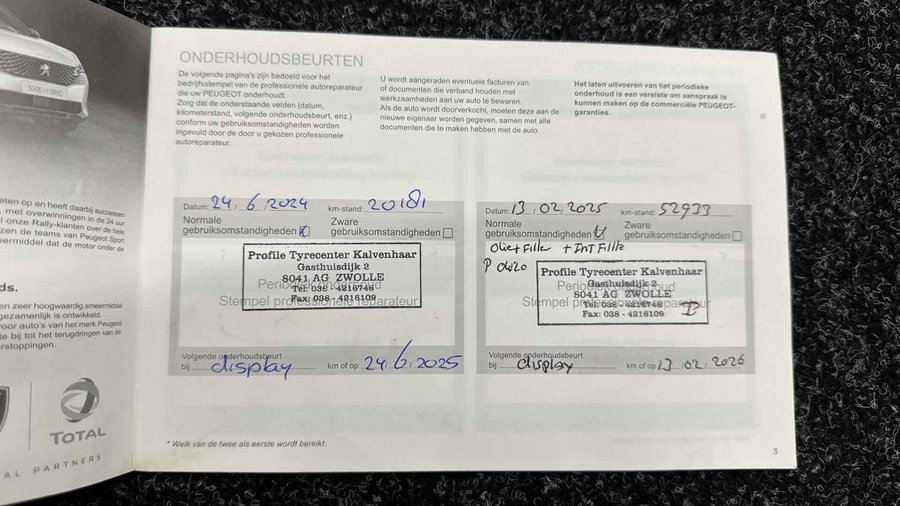 5008 HYBRID
eten op en heeft daarbij successen
, met overwinningen in de 24 uur
l onze Rally-klanten over de hele
zen de teams van Peugeot Sport
eermiddel dat de motor onder de
ds.
en zeer hoogwaardig smeermiddel
gezamenlijk is ontwikkeld.
voor auto's van het merk Peugeot
te bij tot het terugdringen van de
rstoppingen.
TOTAL
AL PARTNERS
ONDERHOUDSBEURTEN
De volgende pagina's zijn bedoeld voor het
bedrijfsstempel van de professionele autoreparateur
die uw PEUGEOT onderhoudt.
Zorg dat de onderstaande velden (datum,
kilometerstand, volgende onderhoudsbeurt, enz.)
conform uw gebruiksomstandigheden worden
ingevuld door de door u gekozen professionele
autoreparateur.
U wordt aangeraden eventuele facturen van
of documenten die verband houden met
werkzaamheden aan uw auto te bewaren.
Als de auto wordt doorverkocht, moeten deze aan de
nieuwe eigenaar worden gegeven, samen met alle
documenten die te maken hebben met de auto.
Het laten uitvoeren van het periodieke
onderhoud is een vereiste om aanspraak te
kunnen maken op de commerciële PEUGEOT-
garanties.
Datum: 24. 6. 2024 km-stand: 20181
Normale
gebruiksomstandigheden
Zware
gebruiksomstandigheden
Profile Tyrecenter Kalvenhaar
Gasthuisdijk 2
8041 AG ZWOLLE
Periodiek onderhoud
Tel: 038 - 4216748
Fax: 038 - 4216109
Stempel professionele reparateur
Volgende onderhoudsbeurt
bij display km of op 24.6.2025
Datum: 13. 02. 2025 km-stand: 52933
Normale
gebruiksomstandigheden
Zware
gebruiksomstandigheden
Olie+Filter + Int Filter
P 0420
Profile Tyrecenter Kalvenhaar
Gasthuisdijk 2
Periodiek onderhoud
8041 AG ZWOLLE
Tel: 038 - 4216748
Stempel professionele reparateur
Fax: 038 - 4216109
Volgende onderhoudsbeurt
bij display km of op 13. 02. 2026
* Welk van de twee als eerste wordt bereikt.
3